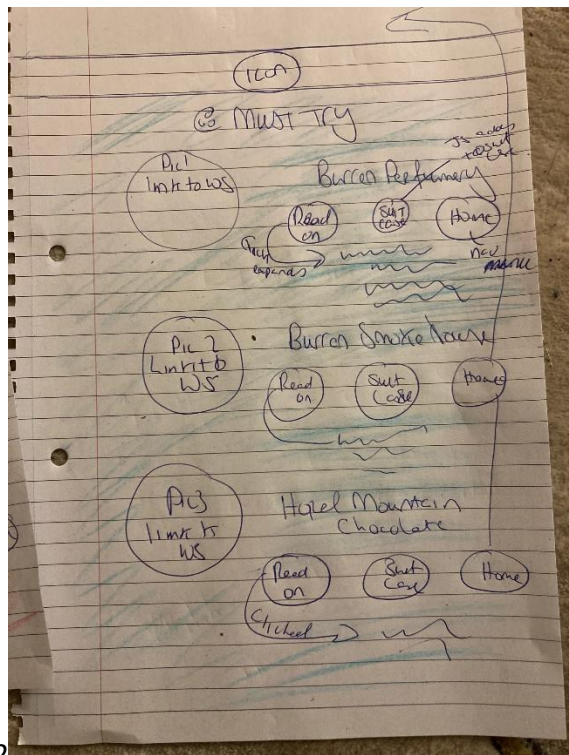 Icon
@ Must Try
Pic 1
link to WS
JS adds
to suit
case
Burren Perfumery
Read
on
Suit
case
Home
Click
expands
nav
Pic 2
Link to
WS
Burren Smoke house
Read
on
Suit
Case
Home
Pic 3
link to
WS
Hazel Mountain
Chocolate
Read
on
Suit
Case
Home
Clicked
2